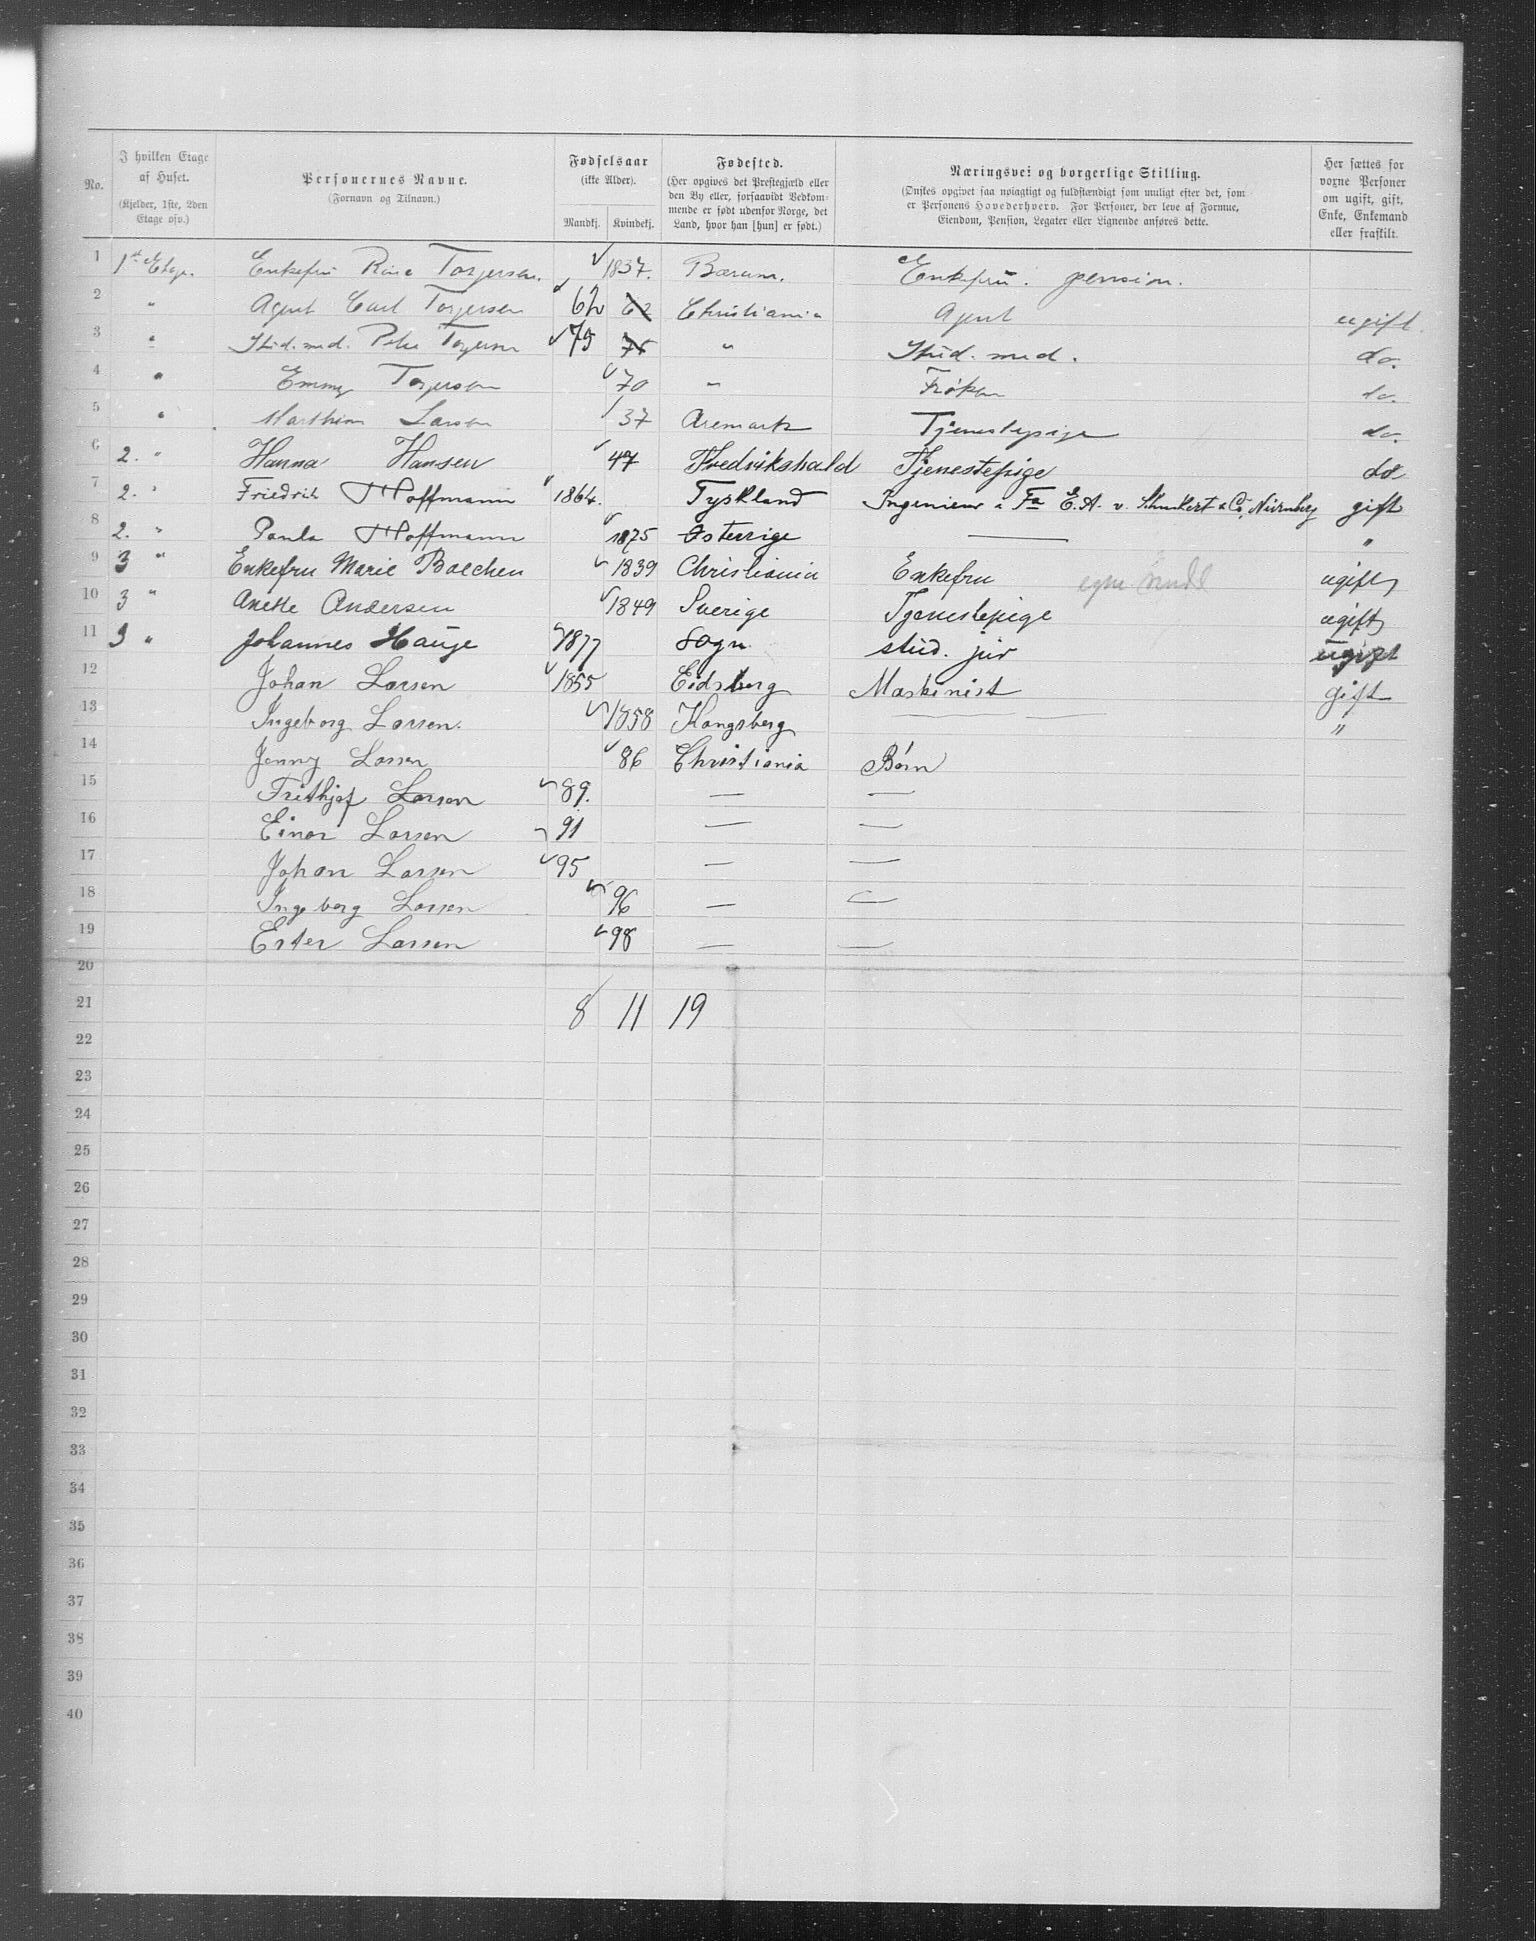 No.
I hvilken Etage af Huset.
(Kjelder, 1ste, 2den Etage osv.)
Personernes Navne.
(Fornavn og Tilnavn.)
Fødselsaar
(ikke Alder).
Mandkj. Kvindekj.
Fødested.
(Her opgives det Prestegjæld eller den By eller, forsaavidt Vedkommende er født udenfor Norge, det Land, hvor han [hun] er født.)
Næringsvei og borgerlige Stilling.
(Ønskes opgivet saa nøiagtigt og fuldstændigt som muligt efter det, som er Personens Hovederhverv. For Personer, der leve af Formue, Eiendom, Pension, Legater eller Lignende anføres dette.
Her sættes for voxne Personer om ugift, gift, Enke, Enkemand eller fraskilt.
1 1ste Etage. Enkefrú Torgersen. 1837. Bærum. Enkefrú. pension.
2 " Agent Carl Torgersen 62 62 Christiania Agent ugift.
3 " Stúd. med. Peter Torgersen 75 75 " Stúd. med. do.
4 " Emmy Torgersen 70 " Frøken do.
5 " Larsen 37 Aremark Tjenestepige do.
6 2. " Hanna Hansen 47 Fredrikshald Tjenestepige do
7 2. " Friedrich Hoffmann 1864. Tyskland Ingenieur i Fa E. A. v. Schuckert & Co, Nürnberg gift
8 2. " Paula Hoffmann 1875 Østerrige — "
9 3 " Enkefru Marie Boecken 1839 Christiania Enkefru egne ugift
10 3 " Anette Andersen 1849 Sverige Tjenestepige ugift
11 3 " Johannes Hauge 1877 Sogn stúd. júr ugift
12 Johan Larsen 1855 Eidsberg Maskinist gift
13 Ingeborg Larsen. 1858 Kongsberg — — "
14 Jenny Larsen 86 Christiania Børn
15 Frithjof Larsen 89. — —
16 Einar Larsen 91 — —
17 Johan Larsen 95 — —
18 Ingeborg Larsen 96 — —
19 Ester Larsen 98 — —
20
21 8 11 19
22
23
24
25
26
27
28
29
30
31
32
33
34
35
36
37
38
39
40